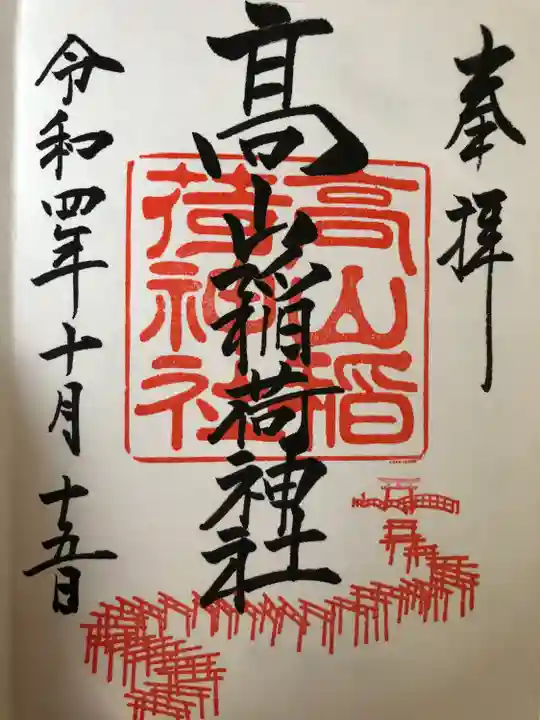 奉拝
髙山稲荷神社
高山稲荷神社
令和四年十月十五日